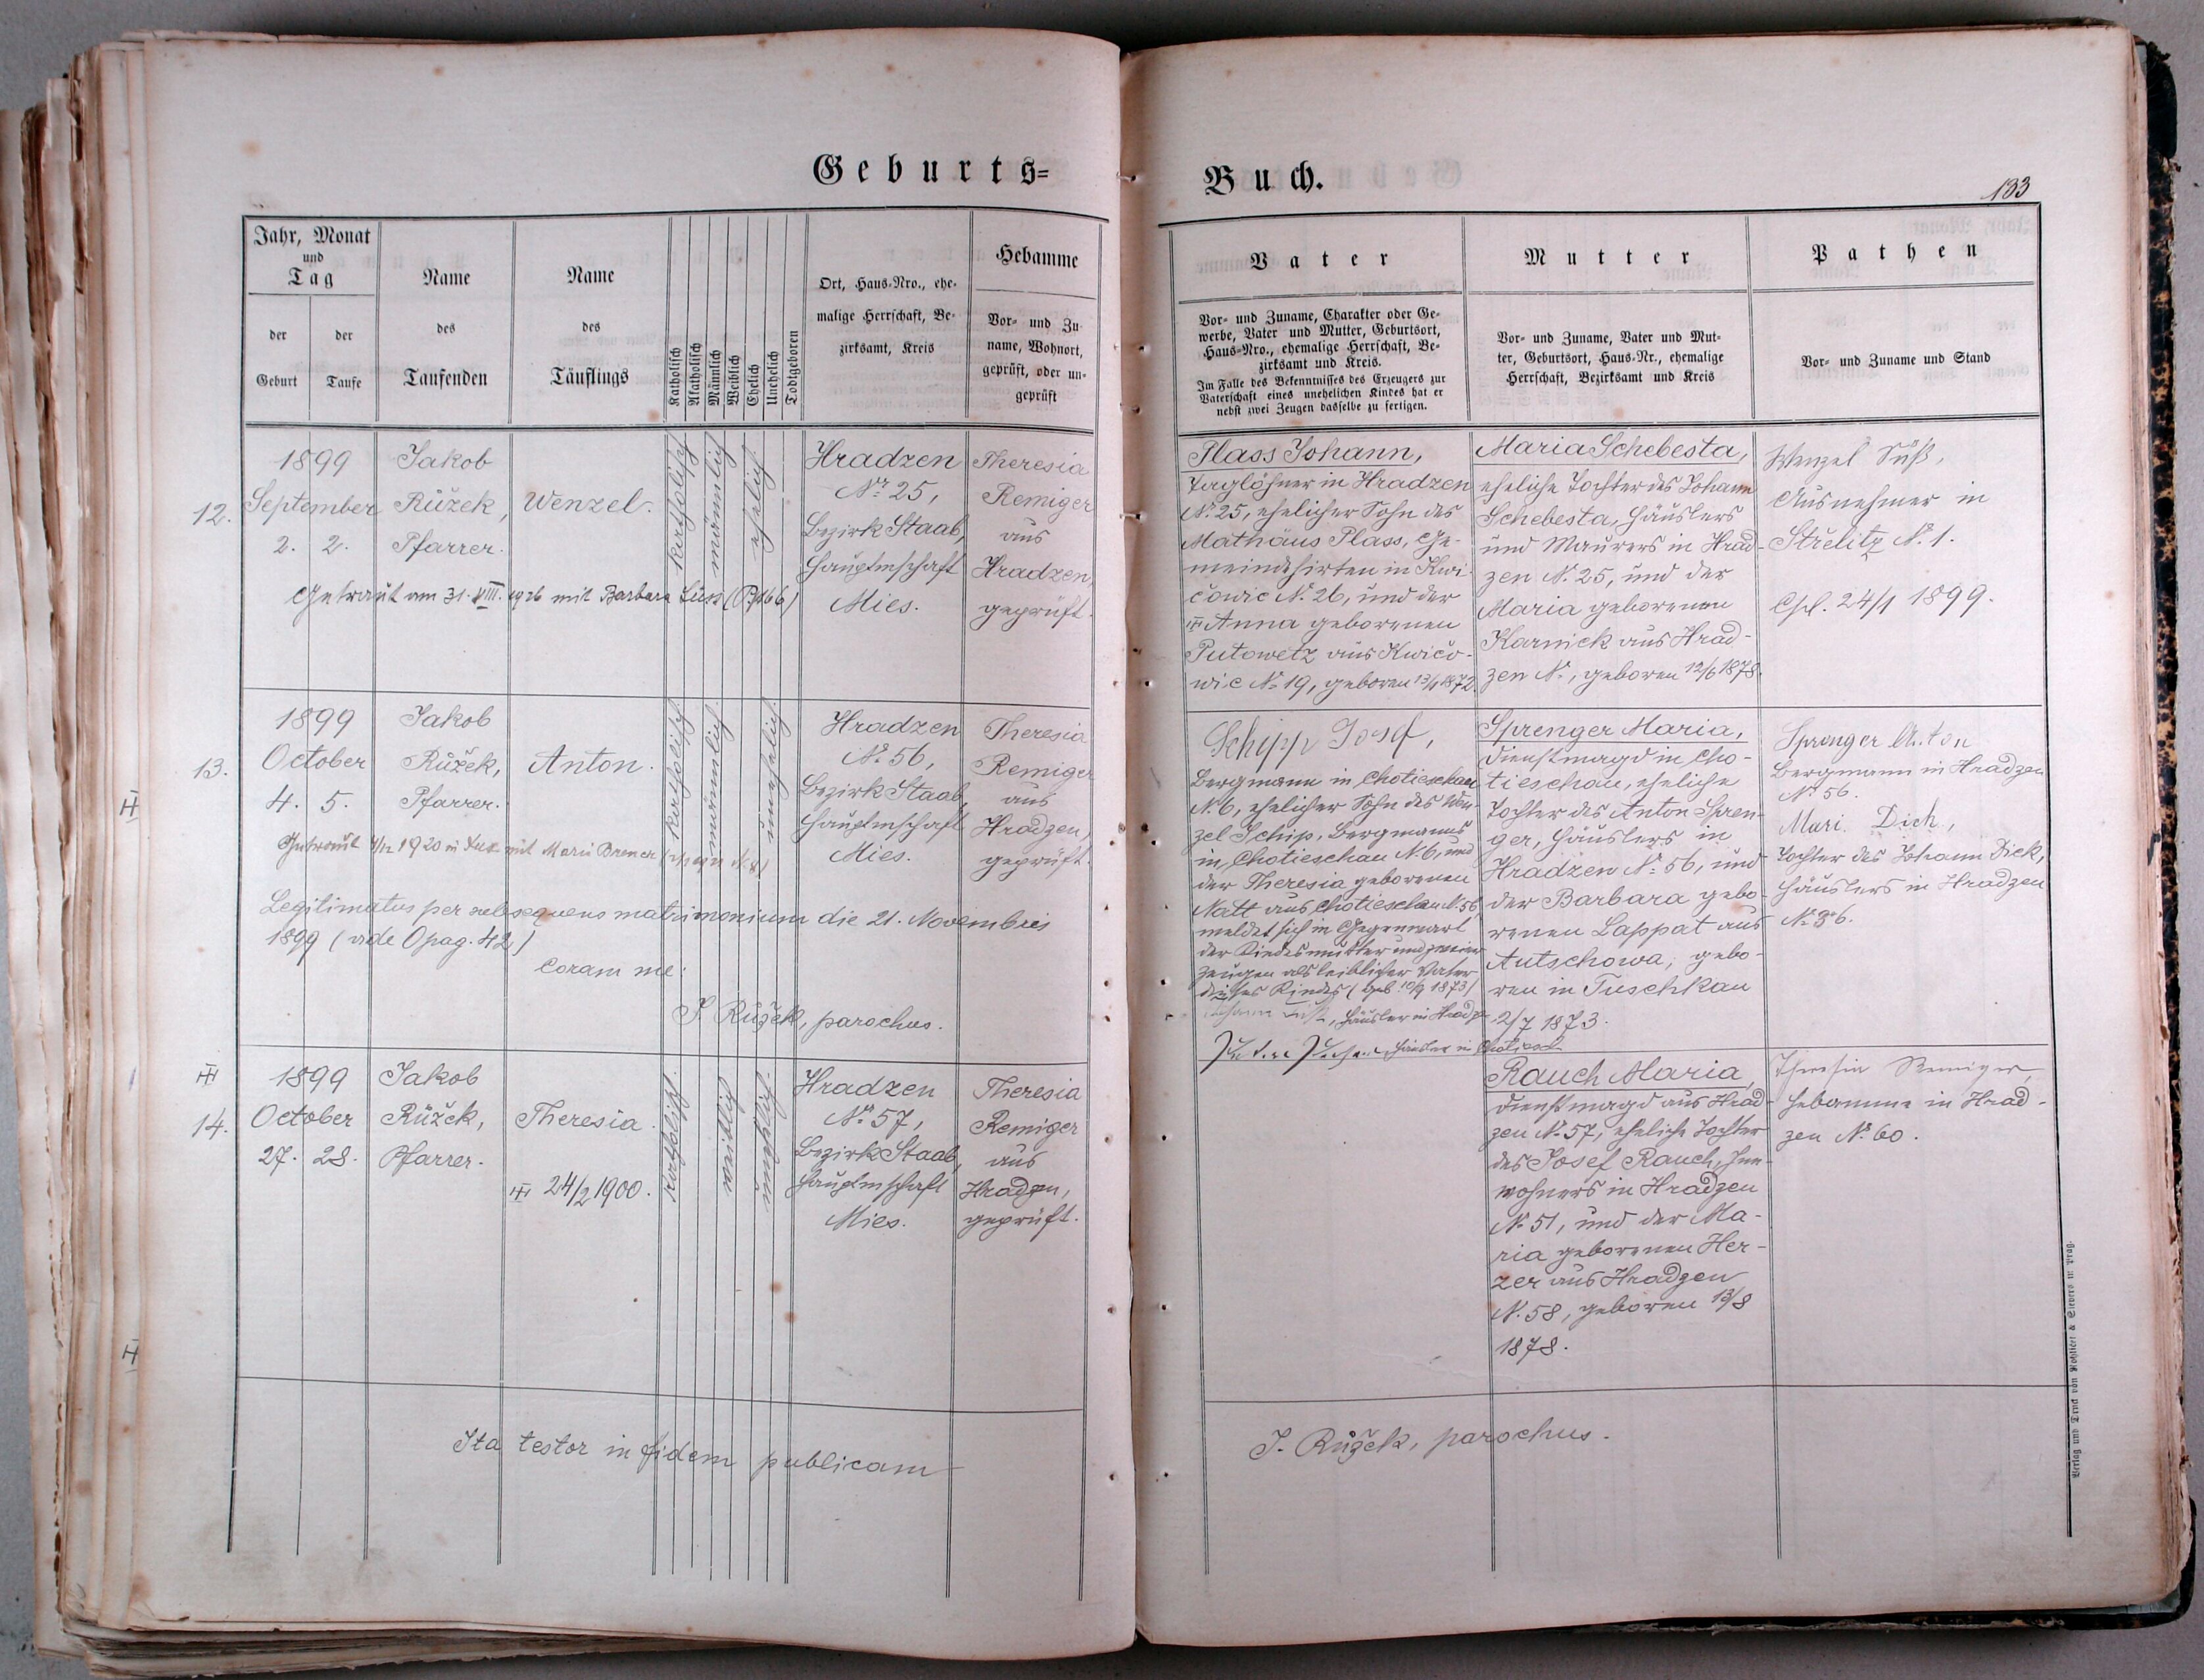 Geburts=
Jahr, Monat
und
Tag
der
Geburt
der
Taufe
Name
des
Taufenden
Name
des
Täuflings
Katholisch
Akatholisch
Männlich
Weiblich
Ehelich
Unehelich
Todtgeboren
Ort, Haus-Nro., ehe-
malige Herrschaft, Be-
zirksamt, Kreis
Hebamme
Vor- und Zu-
name, Wohnort,
geprüft, oder un-
geprüft
12.
1899
September
2. 2.
Jakob
Růžek,
Pfarrer.
Wenzel.
katholisch
männlich
ehelich
Hradzen
Nr. 25,
Bezirk Staab,
Hauptmschaft
Mies.
Theresia
Remiger
aus
Hradzen,
geprüft.
Getraut am 31. VIII. 1926 mit Barbara
13.
1899
October
4. 5.
Jakob
Růžek,
Pfarrer.
Anton.
katholisch
männlich
unehelich
Hradzen
No. 56,
Bezirk Staab,
Hauptmschaft
Mies.
Theresia
Remiger
aus
Hradzen,
geprüft.
Getraut 4/12 1920 in mit Marie
Legitimatus per subsequens matrimonium die 21. Novembris
1899 (vide O pag. 42)
Coram me:
J. Růžek, parochus.
14.
1899
October
27. 28.
Jakob
Růžek,
Pfarrer.
Theresia.
24/2 1900.
katholisch
weiblich
unehelich
Hradzen
Nr. 57,
Bezirk Staab,
Hauptmschaft
Mies.
Theresia
Remiger
aus
Hradzen,
geprüft.
Ita testor in fidem publicam
Buch.
133
Vater
Vor- und Zuname, Charakter oder Ge-
werbe, Vater und Mutter, Geburtsort,
Haus-Nro., ehemalige Herrschaft, Be-
zirksamt und Kreis.
Im Falle des Bekenntnisses des Erzeugers zur
Vaterschaft eines unehelichen Kindes hat er
nebst zwei Zeugen dasselbe zu fertigen.
Mutter
Vor- und Zuname, Vater und Mut-
ter, Geburtsort, Haus-Nr., ehemalige
Herrschaft, Bezirksamt und Kreis
Pathen
Vor- und Zuname und Stand
Plass Johann,
Taglöhner in Hradzen
No. 25, ehelicher Sohn des
Mathäus Plass, Ge-
meindehirten in Kwi-
čowic No. 26, und der
Anna geborenen
Putowetz aus Kwičo-
wic No. 19, geboren 13/4 1872.
Maria Schebesta,
eheliche Tochter des Johann
Schebesta, Häuslers
und Maurers in Hrad-
zen No. 25, und der
Maria geborenen
Karnick aus Hrad-
zen No., geboren 12/6 1878.
Wenzel Süß,
Ausnehmer in
Střelitz No. 1.
24/1 1899.
Schipp Josef,
Bergmann in Chotieschau
No. 6, ehelicher Sohn des Wen-
zel Schip, Bergmanns
in Chotieschau No. 6, und
der Theresia geborenen
Natt aus Chotieschau No. 56,
meldet sich in Gegenwart
der Kindesmutter und zweier
Zeugen als leiblicher Vater
dieses Kindes (geb. 10/9 1873)
Häusler in Hradz-
Häusler in Chotiesch.
Sprenger Maria,
Dienstmagd in Cho-
tieschau, eheliche
Tochter des Anton Spren-
ger, Häuslers in
Hradzen No. 56, und
der Barbara gebo-
renen Lappat aus
Autschowa, gebo-
ren in Tuschkau
2/7 1873.
Sprenger Anton
Bergmann in Hradzen
No. 56.
Mari. Dick,
Tochter des Johann Dick,
Häuslers in Hradzen
No. 36.
Rauch Maria,
Dienstmagd aus Hrad-
zen No. 57, eheliche Tochter
des Josef Rauch, Inn-
wohners in Hradzen
No. 51, und der Ma-
ria geborenen Her-
zer aus Hradzen
No. 58, geboren 13/8
1878.
Theresia Remiger,
Hebamme in Hrad-
zen No. 60.
J. Růžek, parochus.
Verlag und Druck von Rohliček & Sievers in Prag.